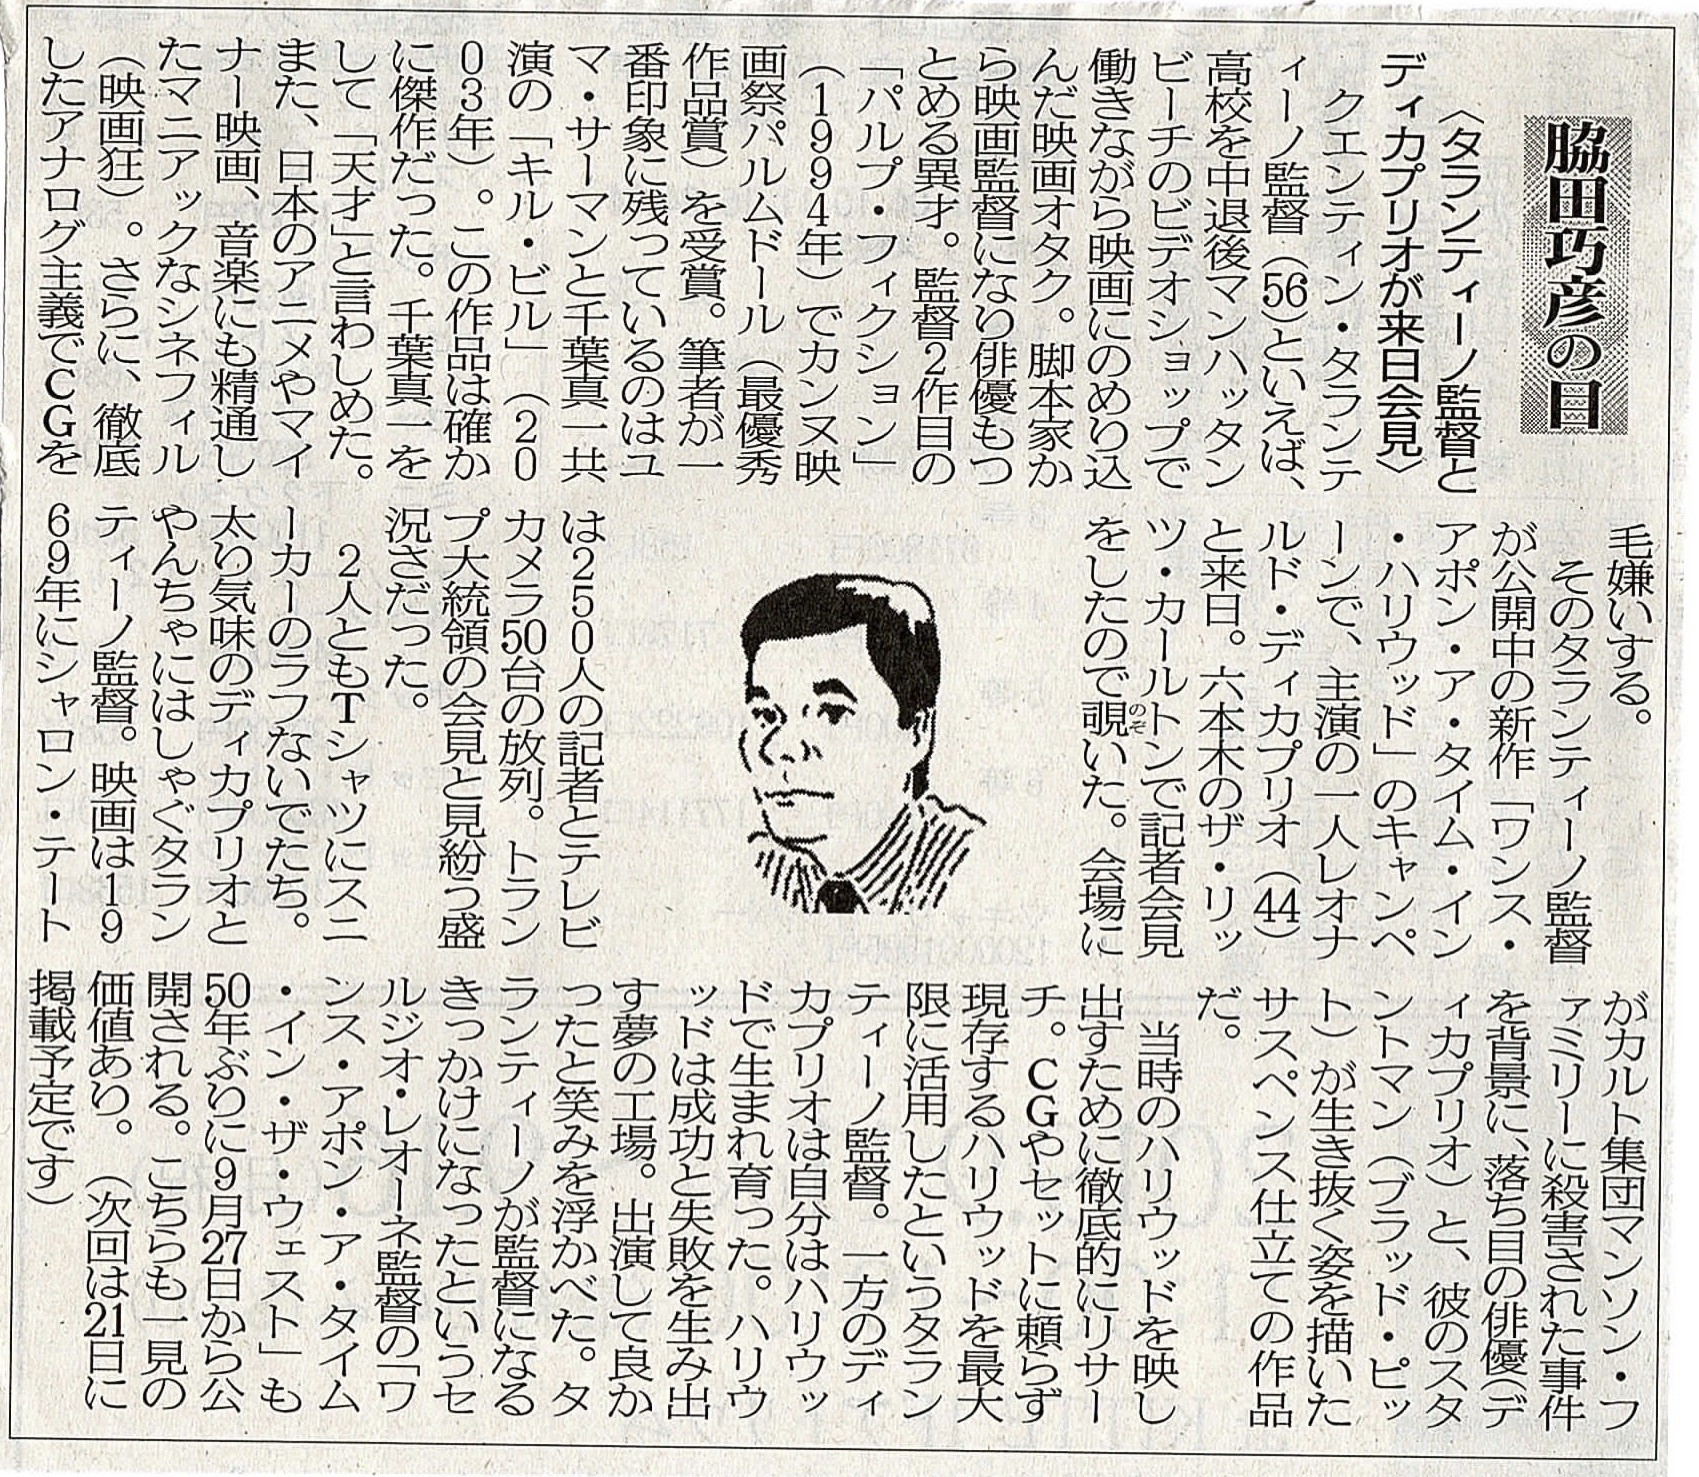 脇田巧彦の目
〈タランティーノ監督と
ディカプリオが来日会見〉
クエンティン・タランテ
ィーノ監督（56）といえば、
高校を中退後マンハッタン
ビーチのビデオショップで
働きながら映画にのめり込
んだ映画オタク。脚本家か
ら映画監督になり俳優もつ
とめる異才。監督2作目の
「パルプ・フィクション」
（1994年）でカンヌ映
画祭パルムドール（最優秀
作品賞）を受賞。筆者が一
番印象に残っているのはユ
マ・サーマンと千葉真一共
演の「キル・ビル」（20
03年）。この作品は確か
に傑作だった。千葉真一を
して「天才」と言わしめた。
また、日本のアニメやマイ
ナー映画、音楽にも精通し
たマニアックなシネフィル
（映画狂）。さらに、徹底
したアナログ主義でCGを
毛嫌いする。
そのタランティーノ監督
が公開中の新作「ワンス・
アポン・ア・タイム・イン
・ハリウッド」のキャンペ
ーンで、主演の一人レオナ
ルド・ディカプリオ（44）
と来日。六本木のザ・リッ
ツ・カールトンで記者会見
をしたので覗のぞいた。会場に
は250人の記者とテレビ
カメラ50台の放列。トラン
プ大統領の会見と見紛う盛
況さだった。
2人ともTシャツにスニ
ーカーのラフないでたち。
太り気味のディカプリオと
やんちゃにはしゃぐタラン
ティーノ監督。映画は19
69年にシャロン・テート
がカルト集団マンソン・フ
ァミリーに殺害された事件
を背景に、落ち目の俳優（デ
ィカプリオ）と、彼のスタ
ントマン（ブラッド・ピッ
ト）が生き抜く姿を描いた
サスペンス仕立ての作品
だ。
当時のハリウッドを映し
出すために徹底的にリサー
チ。CGやセットに頼らず
現存するハリウッドを最大
限に活用したというタラン
ティーノ監督。一方のディ
カプリオは自分はハリウッ
ドで生まれ育った。ハリウ
ッドは成功と失敗を生み出
す夢の工場。出演して良か
ったと笑みを浮かべた。タ
ランティーノが監督になる
きっかけになったというセ
ルジオ・レオーネ監督の「ワ
ンス・アポン・ア・タイム
・イン・ザ・ウェスト」も
50年ぶりに9月27日から公
開される。こちらも一見の
価値あり。（次回は21日に
掲載予定です）